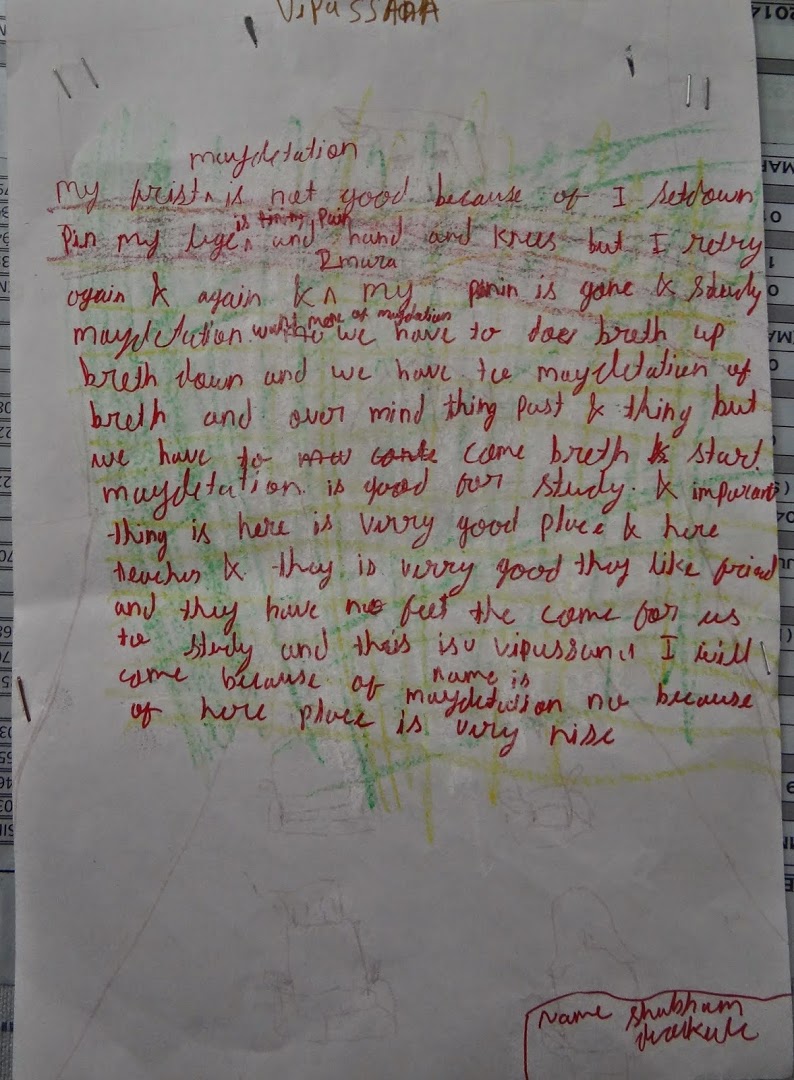 VIPUSSANA
maydetation
My frist ^ is not good because of I setdown
is ^ Pain
Pin my lige ^ and hand and knees but I retry
again & again & ^ my panin is gone & study
maydetation we have to does breth up
more of maydetation
breth down and we have too maydetation of
breth and over mind thing past & thing but
we have to come breth & start
maydetation is good for study. & imparant
thing is here is varry good place & here
teacher & they is verry good they like friend
and they have no feet the come for us
to study and this is vipussana I will
come because of name is
maydetation no because
of here place is very nise
Name Shubham